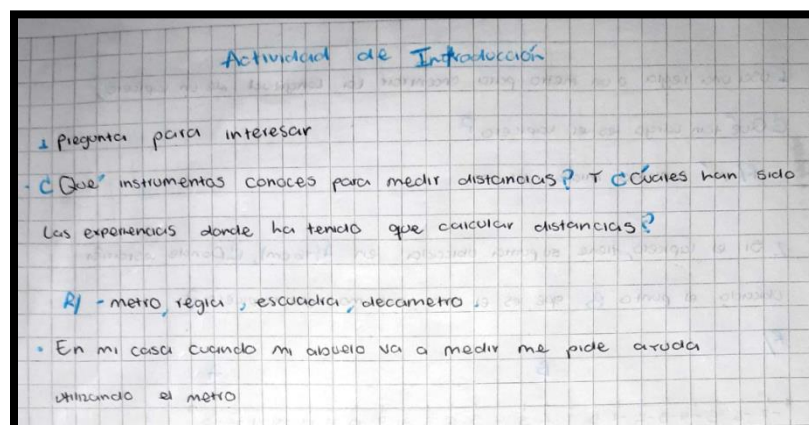 Actividad de Introducción
1 Pregunta para interesar
· ¿Que' instrumentos conoces para medir distancias? Y ¿Cuáles han sido
las experiencias donde ha tenido que calcular distancias?
R/ - metro, regla, escuadra, decametro.
· En mi casa cuando mi abuelo va a medir me pide ayuda
utilizando el metro